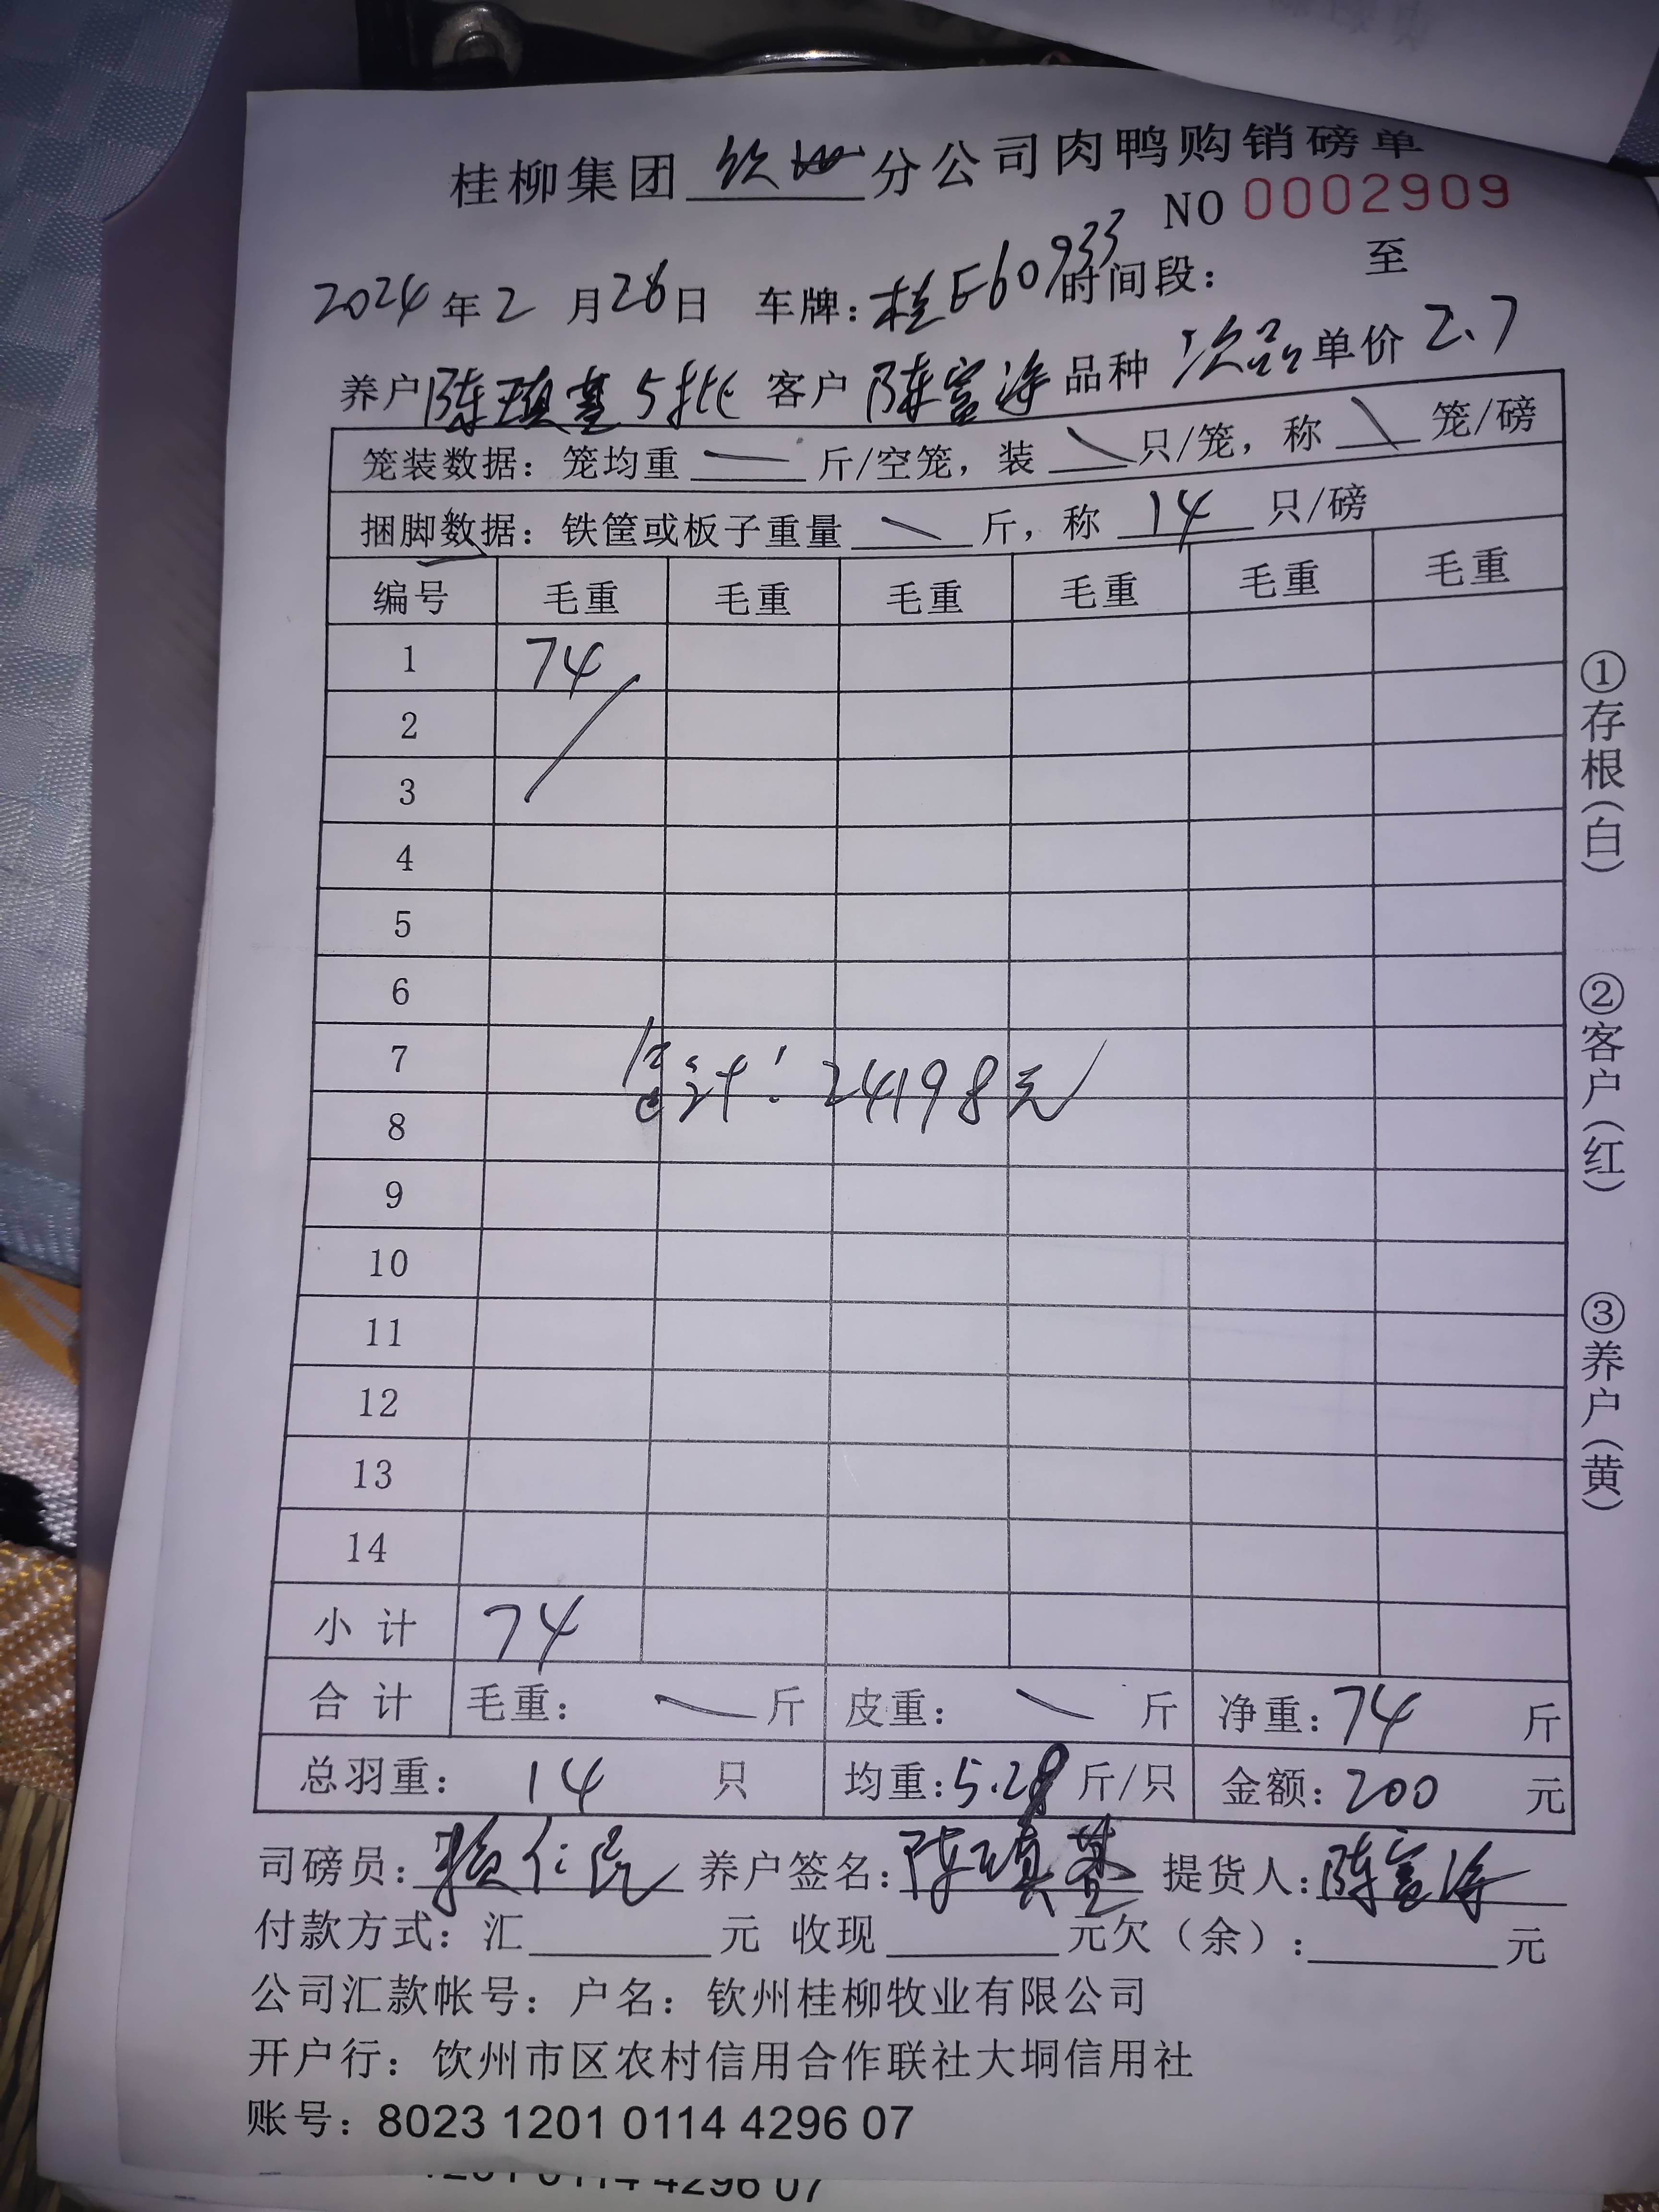 桂柳集团 钦州 分公司肉鸭购销磅单
NO 0002909
2024年2月26日 车牌：桂E60933 时间段： 至
养户 陈瑱基5批 客户 陈富海 品种 次品 单价 2.7
笼装数据：笼均重 斤/空笼，装 只/笼，称 笼/磅
捆脚数据：铁筐或板子重量 斤，称 14 只/磅
编号 毛重 毛重 毛重 毛重 毛重 毛重
1 74
2
3
4
5
6
7
总计：24198元
8
9
10
11
12
13
14
小计 74
合计 毛重： 斤 皮重： 斤 净重：74 斤
总羽重： 14 只 均重：5.28斤/只 金额：200 元
司磅员： 养户签名：陈瑱基 提货人：陈富海
付款方式：汇 元 收现 元欠（余）： 元
公司汇款帐号：户名：钦州桂柳牧业有限公司
开户行：饮州市区农村信用合作联社大垌信用社
账号：8023 1201 0114 4296 07
①存根（白）
②客户（红）
③养户（黄）